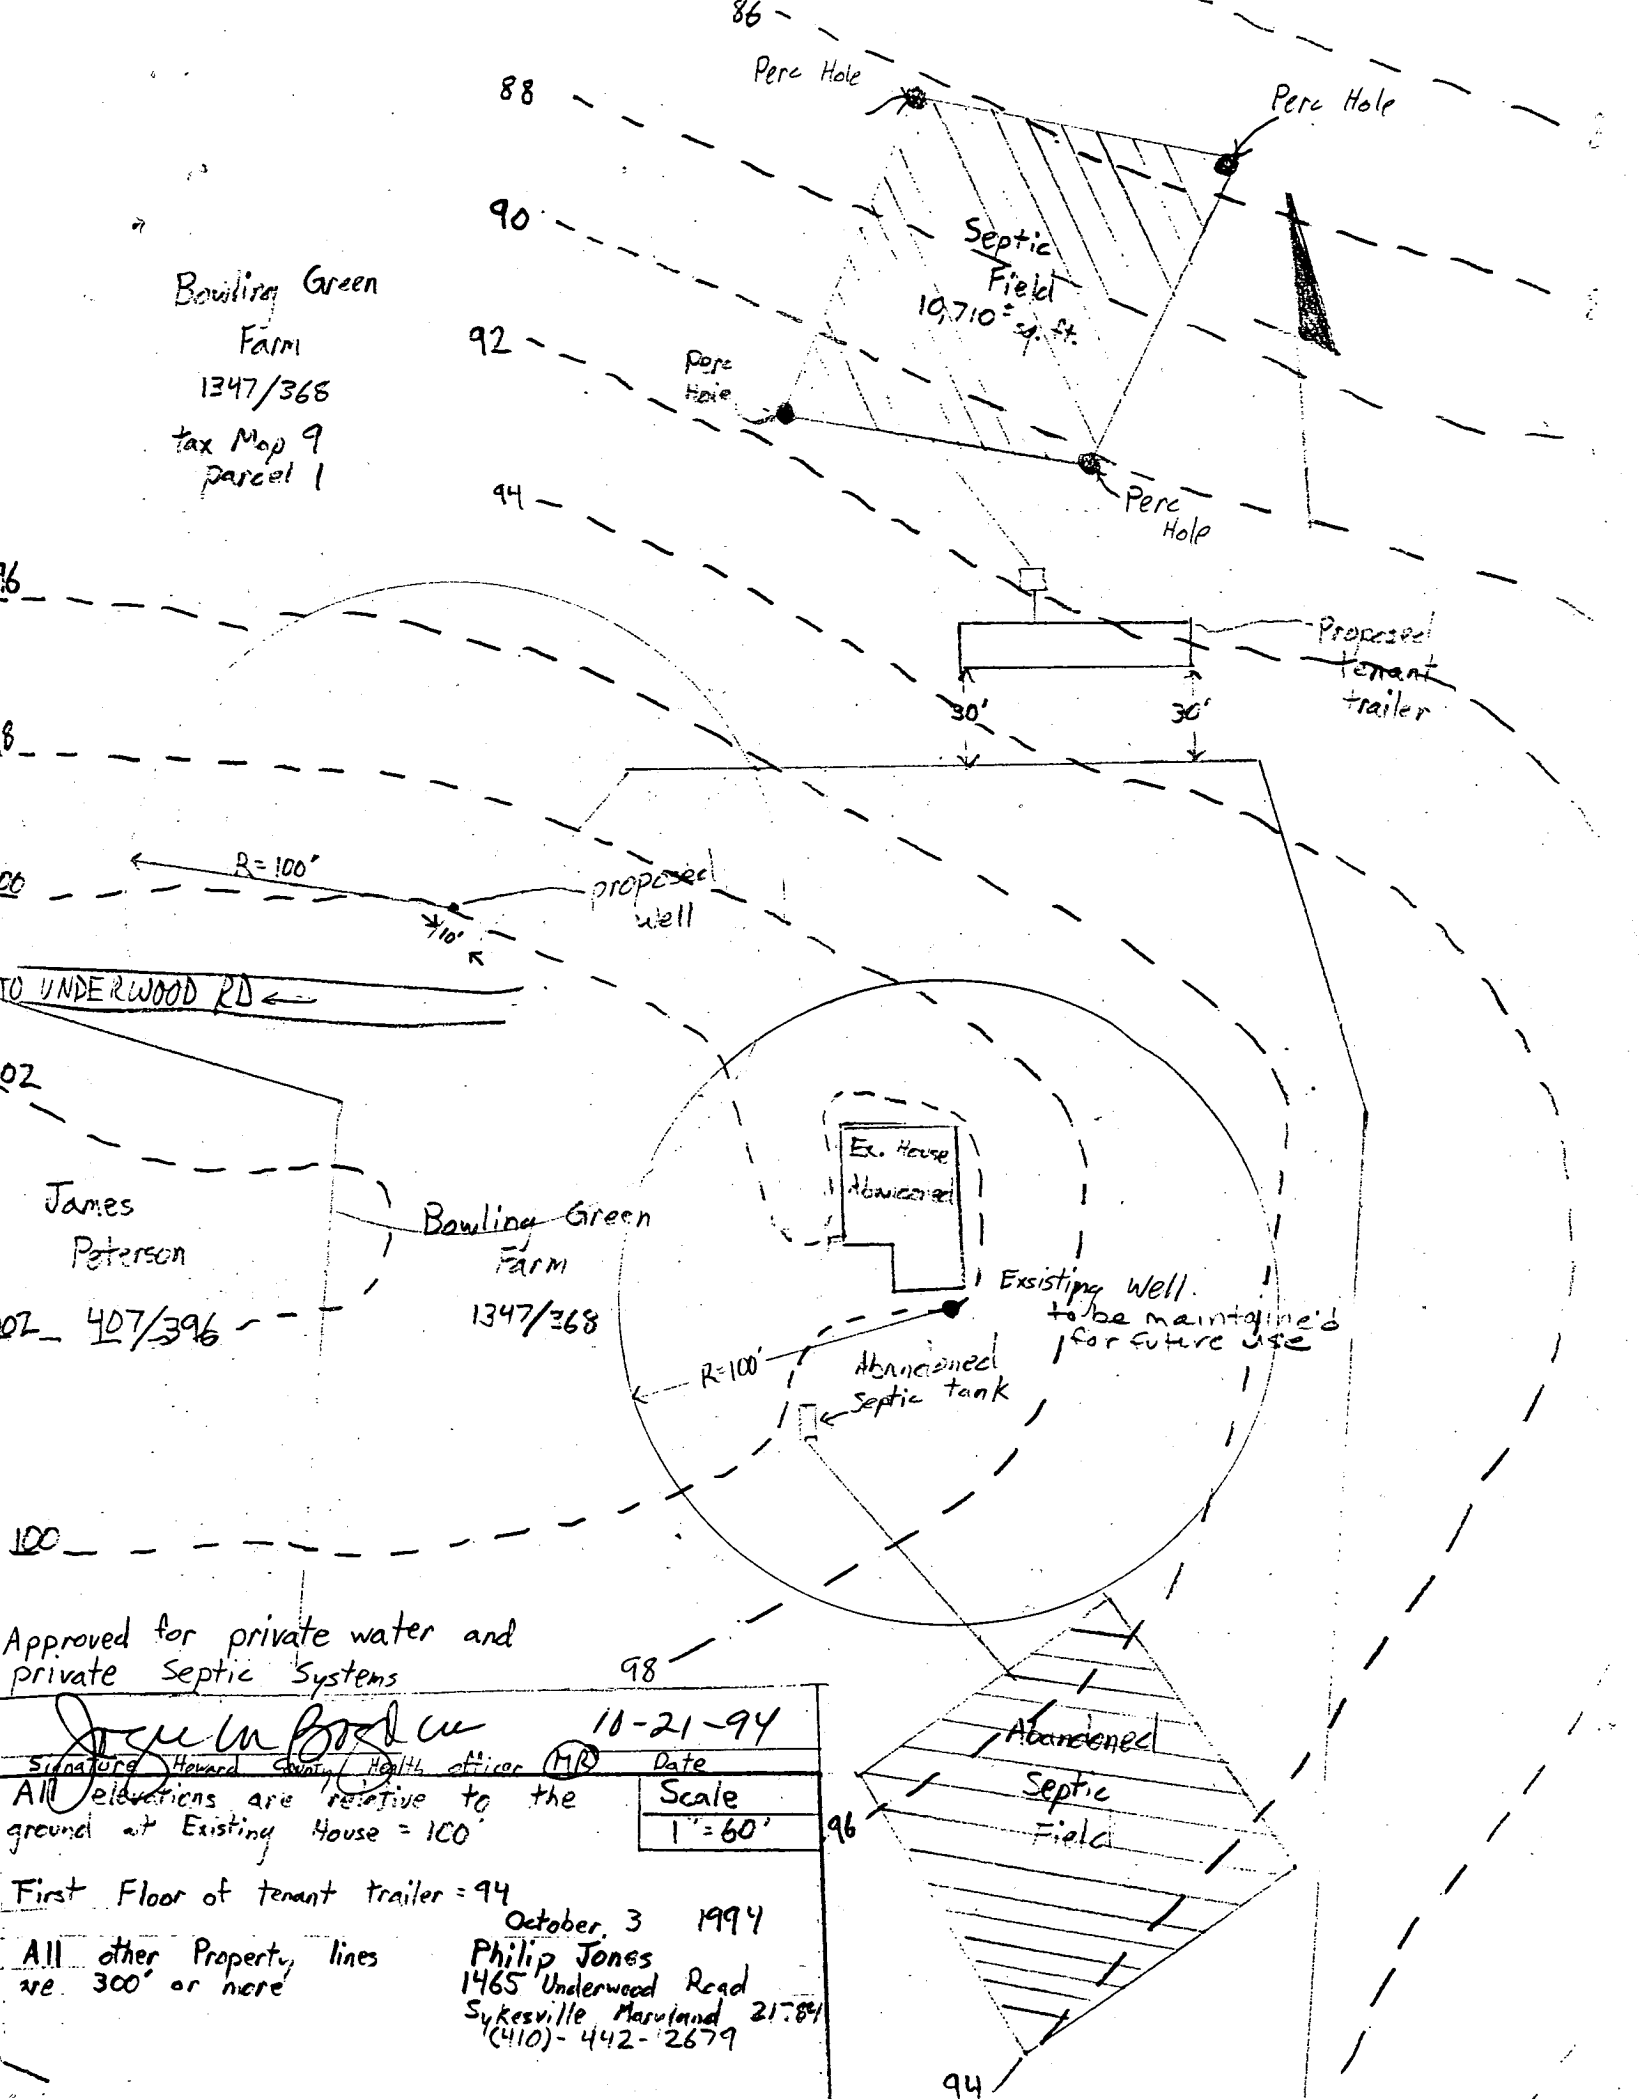 86
Perc Hole
88
Perc Hole
90
Septic
Field
10,710± sq. ft.
Bowling Green
Farm
1347/368
tax Map 9
parcel 1
92
perc
Hole
94
Perc
Hole
96
Proposed
tenant
trailer
30'
30'
8
R=100'
proposed
well
00
10'
TO UNDERWOOD RD
02
Ex. House
Abandoned
James
Peterson
407/396
Bowling Green
Farm
1347/368
02
Exsisting Well.
to be maintaine'd
for future use
R=100'
Abandoned
Septic tank
100
Approved for private water and
private Septic Systems
98
10-21-94
Signature Howard County Health officer MR Date
All elevations are relative to the
ground at Existing House = 100'
Scale
1"=60'
96
Abandoned
Septic
Field
First Floor of tenant trailer = 94
October, 3 1994
All other Property lines
are 300' or more
Philip Jones
1465 Underwood Road
Sykesville Maryland
(410)-442-2679
94